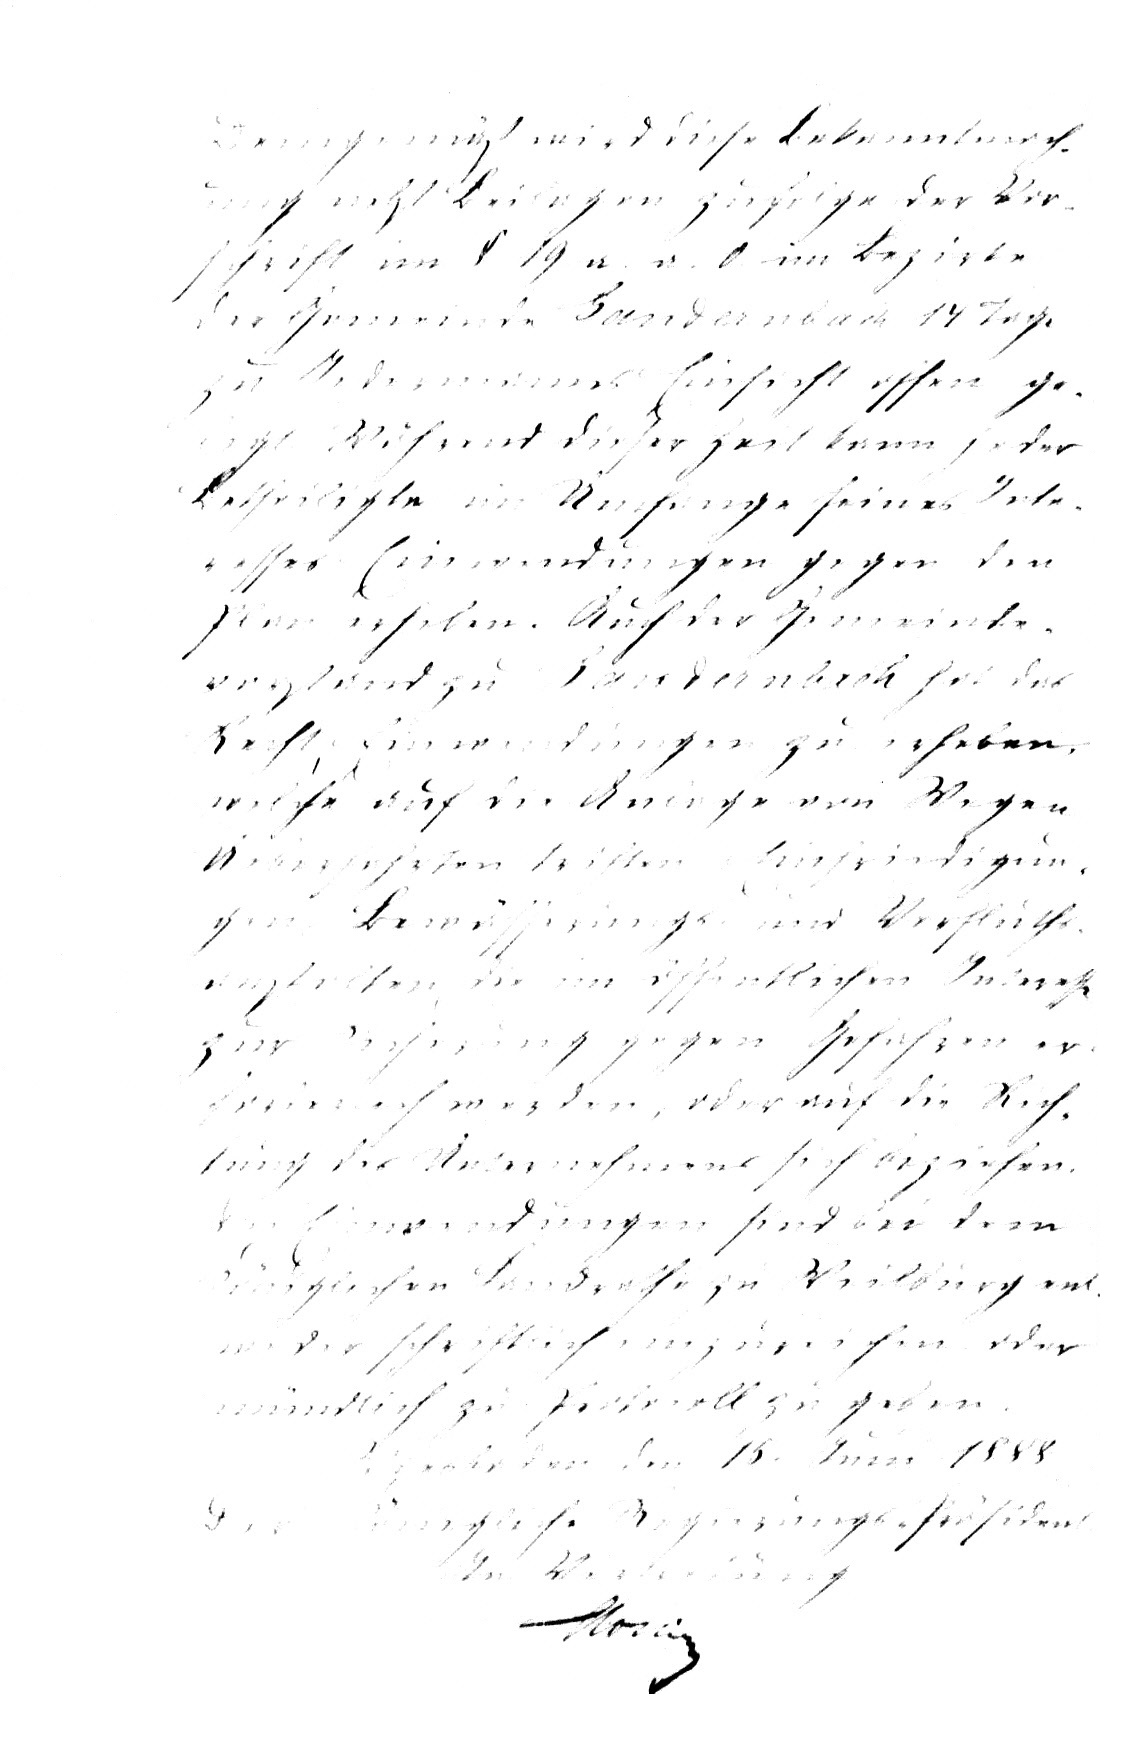 Demgemäß wird diese Bekanntmach-
ung nebst Beilagen zufolge der Vor-
schrift im § 19 a. a. O im Bezirke
der Gemeinde Laudernbach 14 Tage
zu Jedermanns Einsicht offen ge-
legt Während dieser Zeit kann jeder
Betheiligte im Umfange seines Inte-
resses Einwendungen gegen den
Plan erheben. Auch der Gemeinde-
vorstand zu Laudernbach hat das
Recht, Einwendungen zu erheben,
welche auf die Anlage von Wegen
Ueberfahrten Triften Einfriedigun-
gen Bewässerungs- und Vorfluths-
anstalten, die im öffentlichen Interesse
zur Sicherung gegen Gefahren er-
werden, oder auf die Rich-
tung des Unternehmens sich beziehen.
Die Einwendungen sind bei dem
Königlichen Landrathe zu Weilburg ent-
weder schriftlich einzureichen oder
mündlich zu Protocoll zu geben.
Wiesbaden den 15. Juni 1888
Der Königliche Regierungs-Präsident
In Vertretung